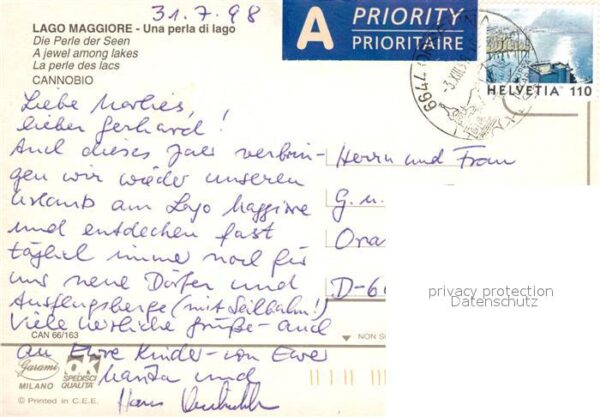 31.7.98
LAGO MAGGIORE - Una perla di lago
Die Perle der Seen
A jewel among lakes
La perle des lacs
CANNOBIO
A PRIORITY
PRIORITAIRE
HELVETIA 110
6644
Liebe Marlies,
lieber Gerhard!
Auch dieses Jahr verbrin-
gen wir wieder unseren
Urlaub am Lago Maggiore
und entdecken fast
täglich immer noch für
uns neue Dörfer und
Ausflugsberge (mit Seilbahn!)
Viele herzliche Grüße - auch
an Eure Kinder - von Euer
und
Hans
Herrn und Frau
G. u.
Ora
D-66
privacy protection
Datenschutz
CAN 66/163
NON S
Garami
MILANO
OK
SPEDISCI
QUALITA'
© Printed in C.E.E.